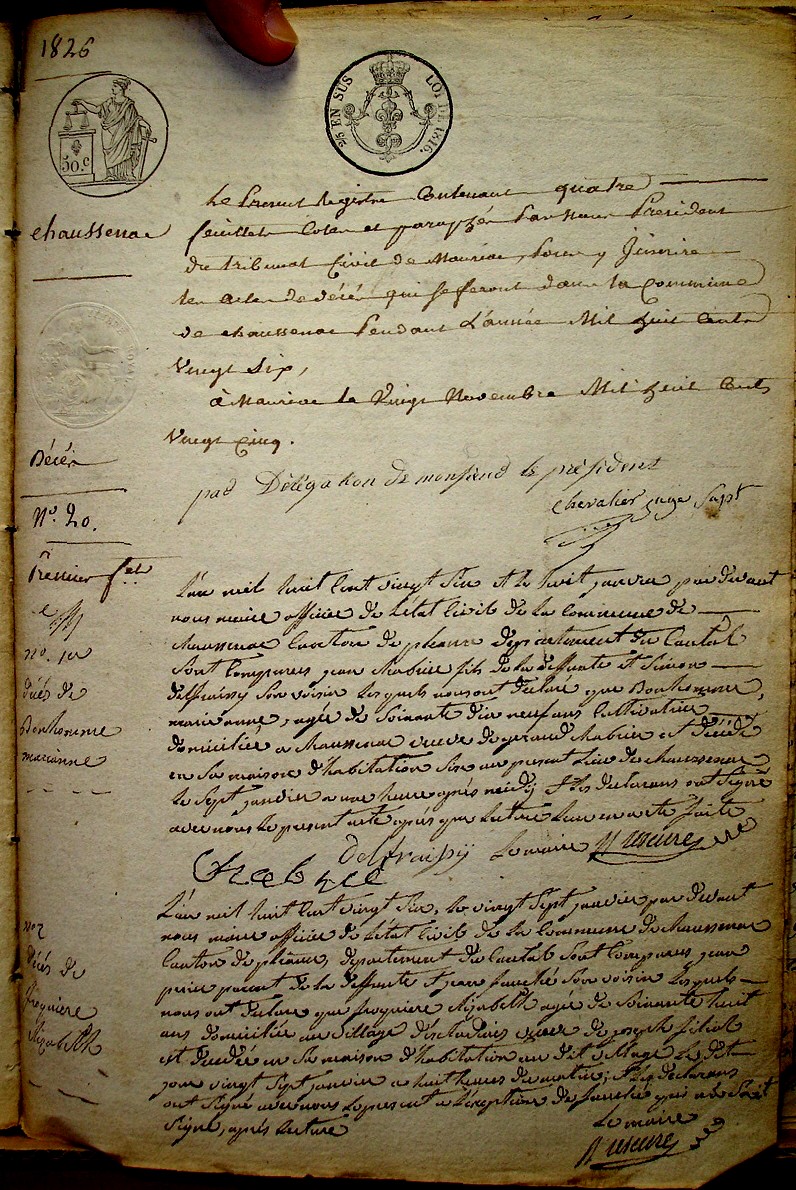 1826
50.c
2/5 EN SUS LOI DE 1816.
chaussenac
Le Present Registre Contenant quatre
feuillets Coté et paraphé Par Nous President
du tribunal Civil de Mauriac, Pour y Jnscrire
les actes de décés qui se feront dans la Commune
de chaussenac Pendant L'année Mil huit Cents
Vingt Six,
à Mauriac le Vingt Novembre Mil huit Cents
Vingt Cinq.
Décés
par Délégation de monsieur le président
Chevalier juge Supt
No. 20.
Premier fet
L'an mil huit Cent vingt Six et le huit janvier par devant
nous maire officier de L'état Civil de La Commune de
chaussenac Canton de pleaux département du Cantal
Sont Comparus jean Chabrie fils de la deffunte et Simon
delfraissy Son voisin Lesquels nous ont declaré que Bonhomme,
marianne, agée de Soixante dix neuf ans Cultivatrice
domiciliée a chaussenac veuve de geraud Chabrie est décédé
en Sa maison d'habitation Sise au present Lieu de chaussenac
Le Sept janvier a une heure aprés midy Et Les declarans ont Signé
avec nous Le present acte aprés que Lecture Leur en a eté faite
No. 1er
décés de
Bonhomme
marianne
delfraissy Le maire
Chabrie
L'an mil huit Cent vingt Six, Le vingt Sept janvier par devant
nous maire officier de L'état Civil de La Commune de chaussenac
Canton de pleaux, département du Cantal Sont Comparus jean
parent de la deffunte et jean Son voisin Lesquels
nous ont declaré que froquiere Elizabeth agée de Soixante huit
ans domiciliée au village veuve de joseph filiol
est decedée en Sa maison d'habitation au dit village Le dit
jour vingt Sept janvier a huit heures du matin; Et Les declarans
ont Signé avec nous Le present a L'exception de qui n'a Sçeu
Signé, aprés Lecture
No 2
décés de
froquiere
Elizabeth
Le maire